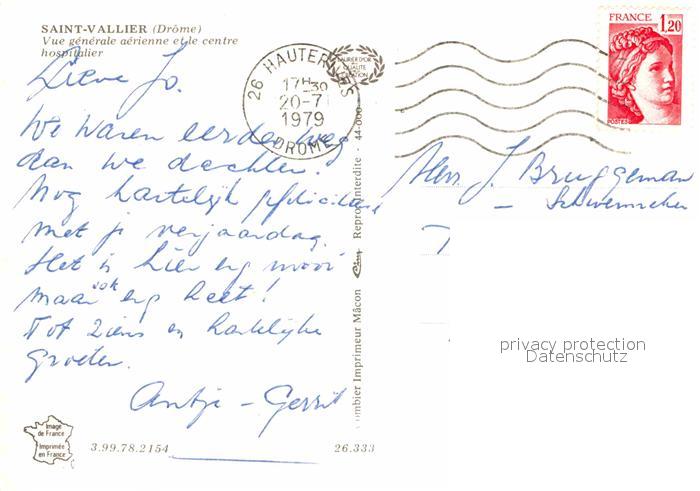 SAINT-VALLIER (Drôme)
Vue générale aérienne et le centre
hospitalier
Lieve Jo.
We waren eerder weg
dan we dachten.
Nog hartelijk
met je verjaardag.
Het is hier erg mooi
maar ook erg heet!
Tot ziens en hartelijke
groeten.
Antje - Gerrit
Image
de France
Imprimée
en France
3.99.78.2154
26.333
26 HAUTERIVES
17H30
20-7
1979
DROME
Combier Imprimeur Mâcon Cim Reprod. interdite -
FRANCE
1,20
POSTES
J. Bruggeman
privacy protection
Datenschutz